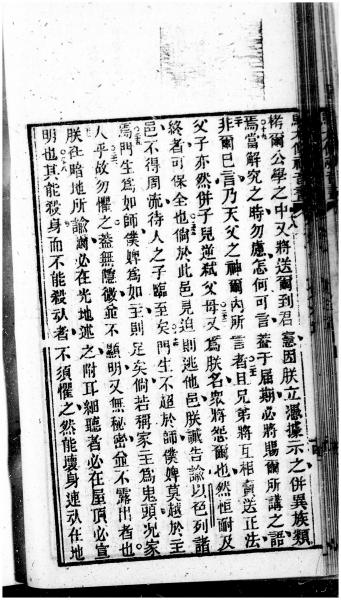 榜爾公學之中又將送爾到君憲因朕立憑據示之併異族類
焉當解究之時勿慮怎何可言蓋于屆期必將賜爾所講之語
非爾巳言乃天父之神爾內所言者且兄弟將互相賣送正法
父子亦然併子兒逆弒父母又爲朕名衆將怨爾也然恒耐及
終者可保全也倘於此邑見迫則逃他邑朕誠告諭以色列諸
邑不得周流待人之子臨至矣門生不超於師僕婢莫越於主
爲門生爲如師僕婢爲如主則足矣倘若稱家主爲鬼頭況家
人乎故勿懼之蓋無隱微並不顯明又無秘密並不露出者也
朕在暗地所諭爾必在光地述之附耳細聽者必在屋頂必宣
明也其能殺身而不能殺𠆩者不須懼之然能壞身連𠆩在地